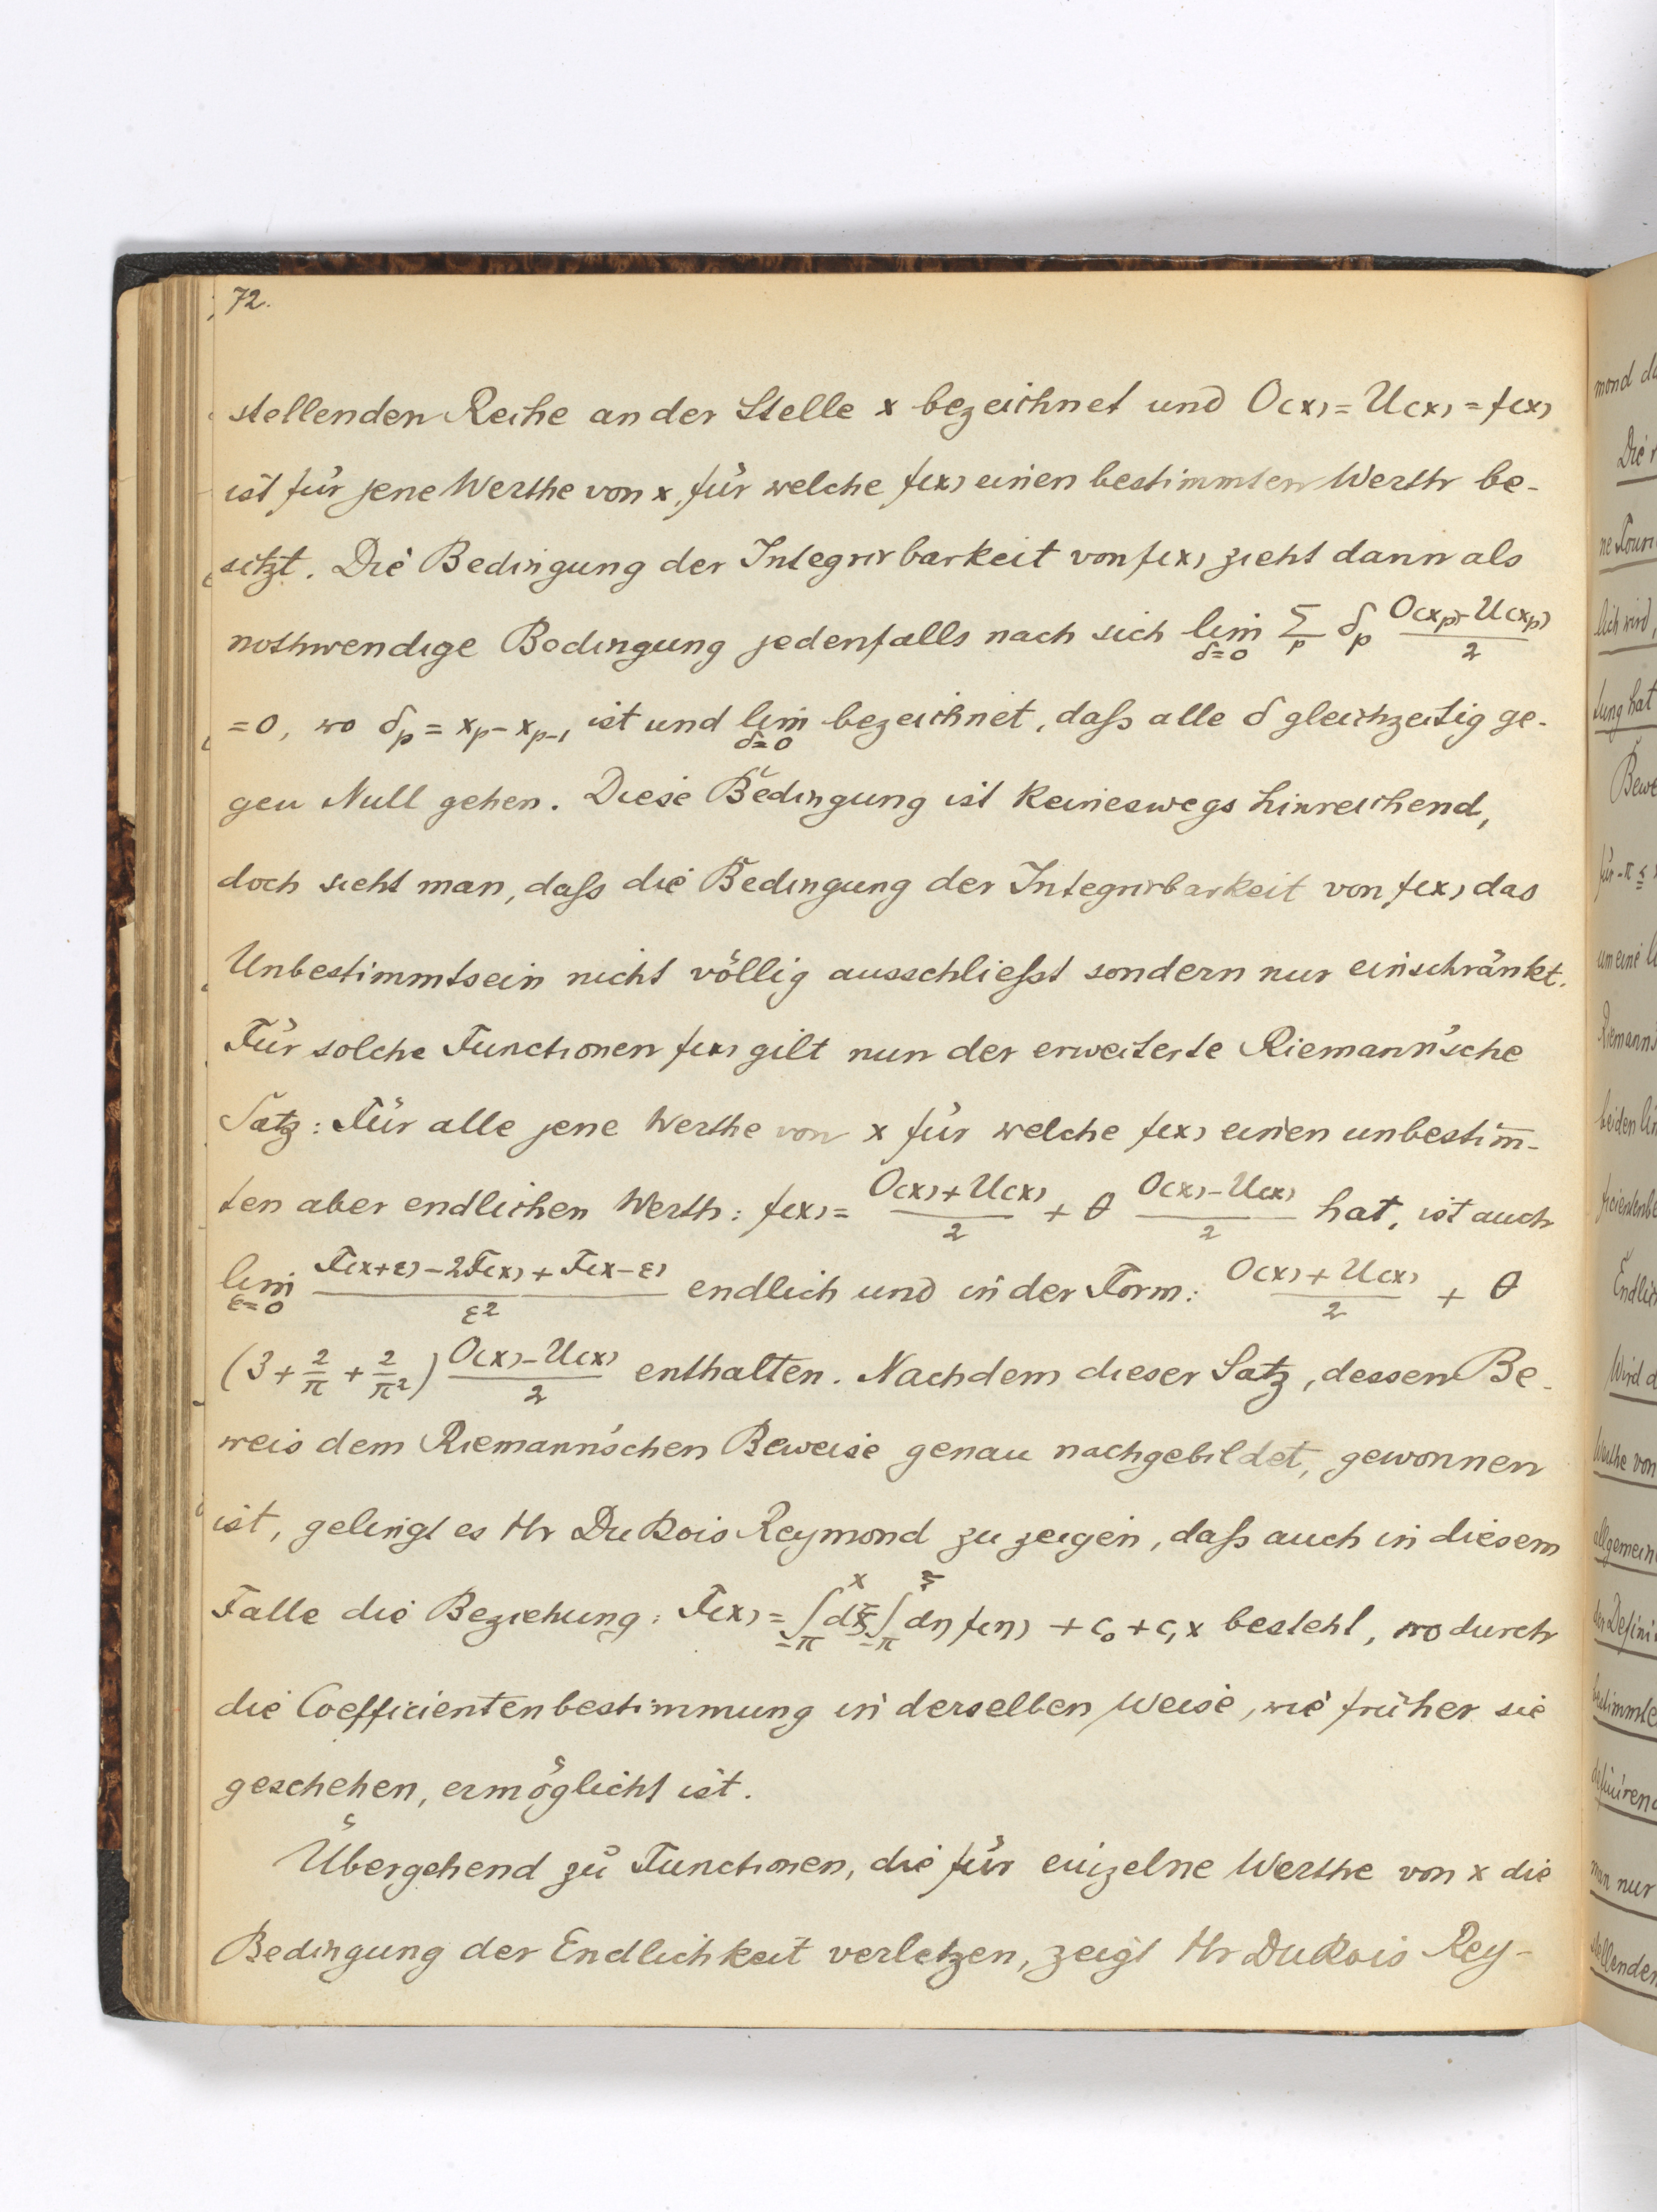 72.
stellenden Reihe an der Stelle x bezeichnet und O(x) = U(x) = f(x)
ist für jene Werthe von x, für welche f(x) einen bestimmten Werth be-
sitzt. Die Bedingung der Integrirbarkeit von f(x) zieht dann als
nothwendige Bedingung jedenfalls nach sich lim_{δ=0} Σ_p δ_p (O(x_p)-U(x_p))/2
=0, wo δ_p = x_p - x_{p-1} ist und lim_{δ=0} bezeichnet, daſs alle δ gleichzeitig ge-
gen Null gehen. Diese Bedingung ist keineswegs hinreichend,
doch sieht man, daſs die Bedingung der Integrirbarkeit von f(x) das
Unbestimmtsein nicht völlig ausschlieſst sondern nur einschränkt.
Für solche Functionen f(x) gilt nun der erweiterte Riemann'sche
Satz: Für alle jene Werthe von x für welche f(x) einen unbestim̅-
ten aber endlichen Werth: f(x) = (O(x)+U(x))/2 + θ (O(x)-U(x))/2 hat, ist auch
lim_{ε=0} (F(x+ε)-2F(x)+F(x-ε))/ε² endlich und in der Form: (O(x)+U(x))/2 + θ
(3 + 2/π + 2/π²) (O(x)-U(x))/2 enthalten. Nachdem dieser Satz, dessen Be-
weis dem Riemann'schen Beweise genau nachgebildet, gewonnen
ist, gelingt es Hr Du Bois Reymond zu zeigen, daſs auch in diesem
Falle die Beziehung: F(x) = ∫_{-π}^{x} dξ ∫_{-π}^{ξ} dη f(η) + c₀ + c₁x besteht, wo durch
die Coefficientenbestimmung in derselben Weise, wie früher sie
geschehen, ermöglicht ist.
Übergehend zu Functionen, die für einzelne Werthe von x die
Bedingung der Endlichkeit verletzen, zeigt Hr Du Bois Rey-
mond
Die
ne
lich wird,
tung hat
Bewe
für -π ≤
um eine
Riemann
beiden
Endlich
Wird d
Werthe von
allgemein
den Defini
bestimmte
definirend
man nur
stellenden